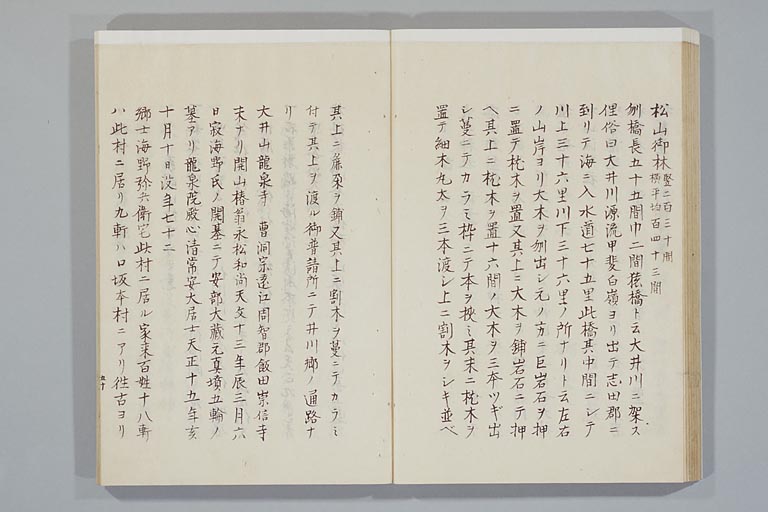 松山御林 竪二百三十間
横平均百四十三間
刎橋長五十五間巾二間猿橋ト云大井川ニ架ス
俚俗曰大井川源流甲斐白嶺ヨリ出テ志田郡ニ
到リテ海ニ入水道七十五里此橋其中間ニシテ
川上三十六里川下三十六里ノ所ナリト云左右
ノ山岸ヨリ大木ヲ刎出シ元ノ方ニ巨岩石ヲ押
ニ置テ枕木ヲ置又其上ニ大木ヲ鋪岩石ニテ押
ヘ其上ニ枕木ヲ置十六間ノ大木ヲ三本ツギ出
シ蔓ニテカラミ枠ニテ本ヲ挾ミ其末ニ枕木ヲ
置テ細木丸太ヲ三本渡シ上ニ割木ヲシキ並ベ
其上ニ簾朶ヲ鋪又其上ニ割木ヲ蔓ニテカラミ
付テ其上ヲ渡ル御普請所ニテ井川郷ノ通路ナ
リ
大井山龍泉寺 曹洞宗遠江周智郡飯田崇信寺
末ナリ開山椿翁永松和尚天文十三年辰三月六
日寂海野氏ノ開基ニテ安部大蔵元真墳五輪ノ
墓アリ龍泉院殿心清常安大居士天正十五年亥
十月十日没年七十二
郷士海野弥兵衛宅此村ニ居ル家来百姓十八軒
ハ此村ニ居リ九軒ハ口坂本村ニアリ往古ヨリ